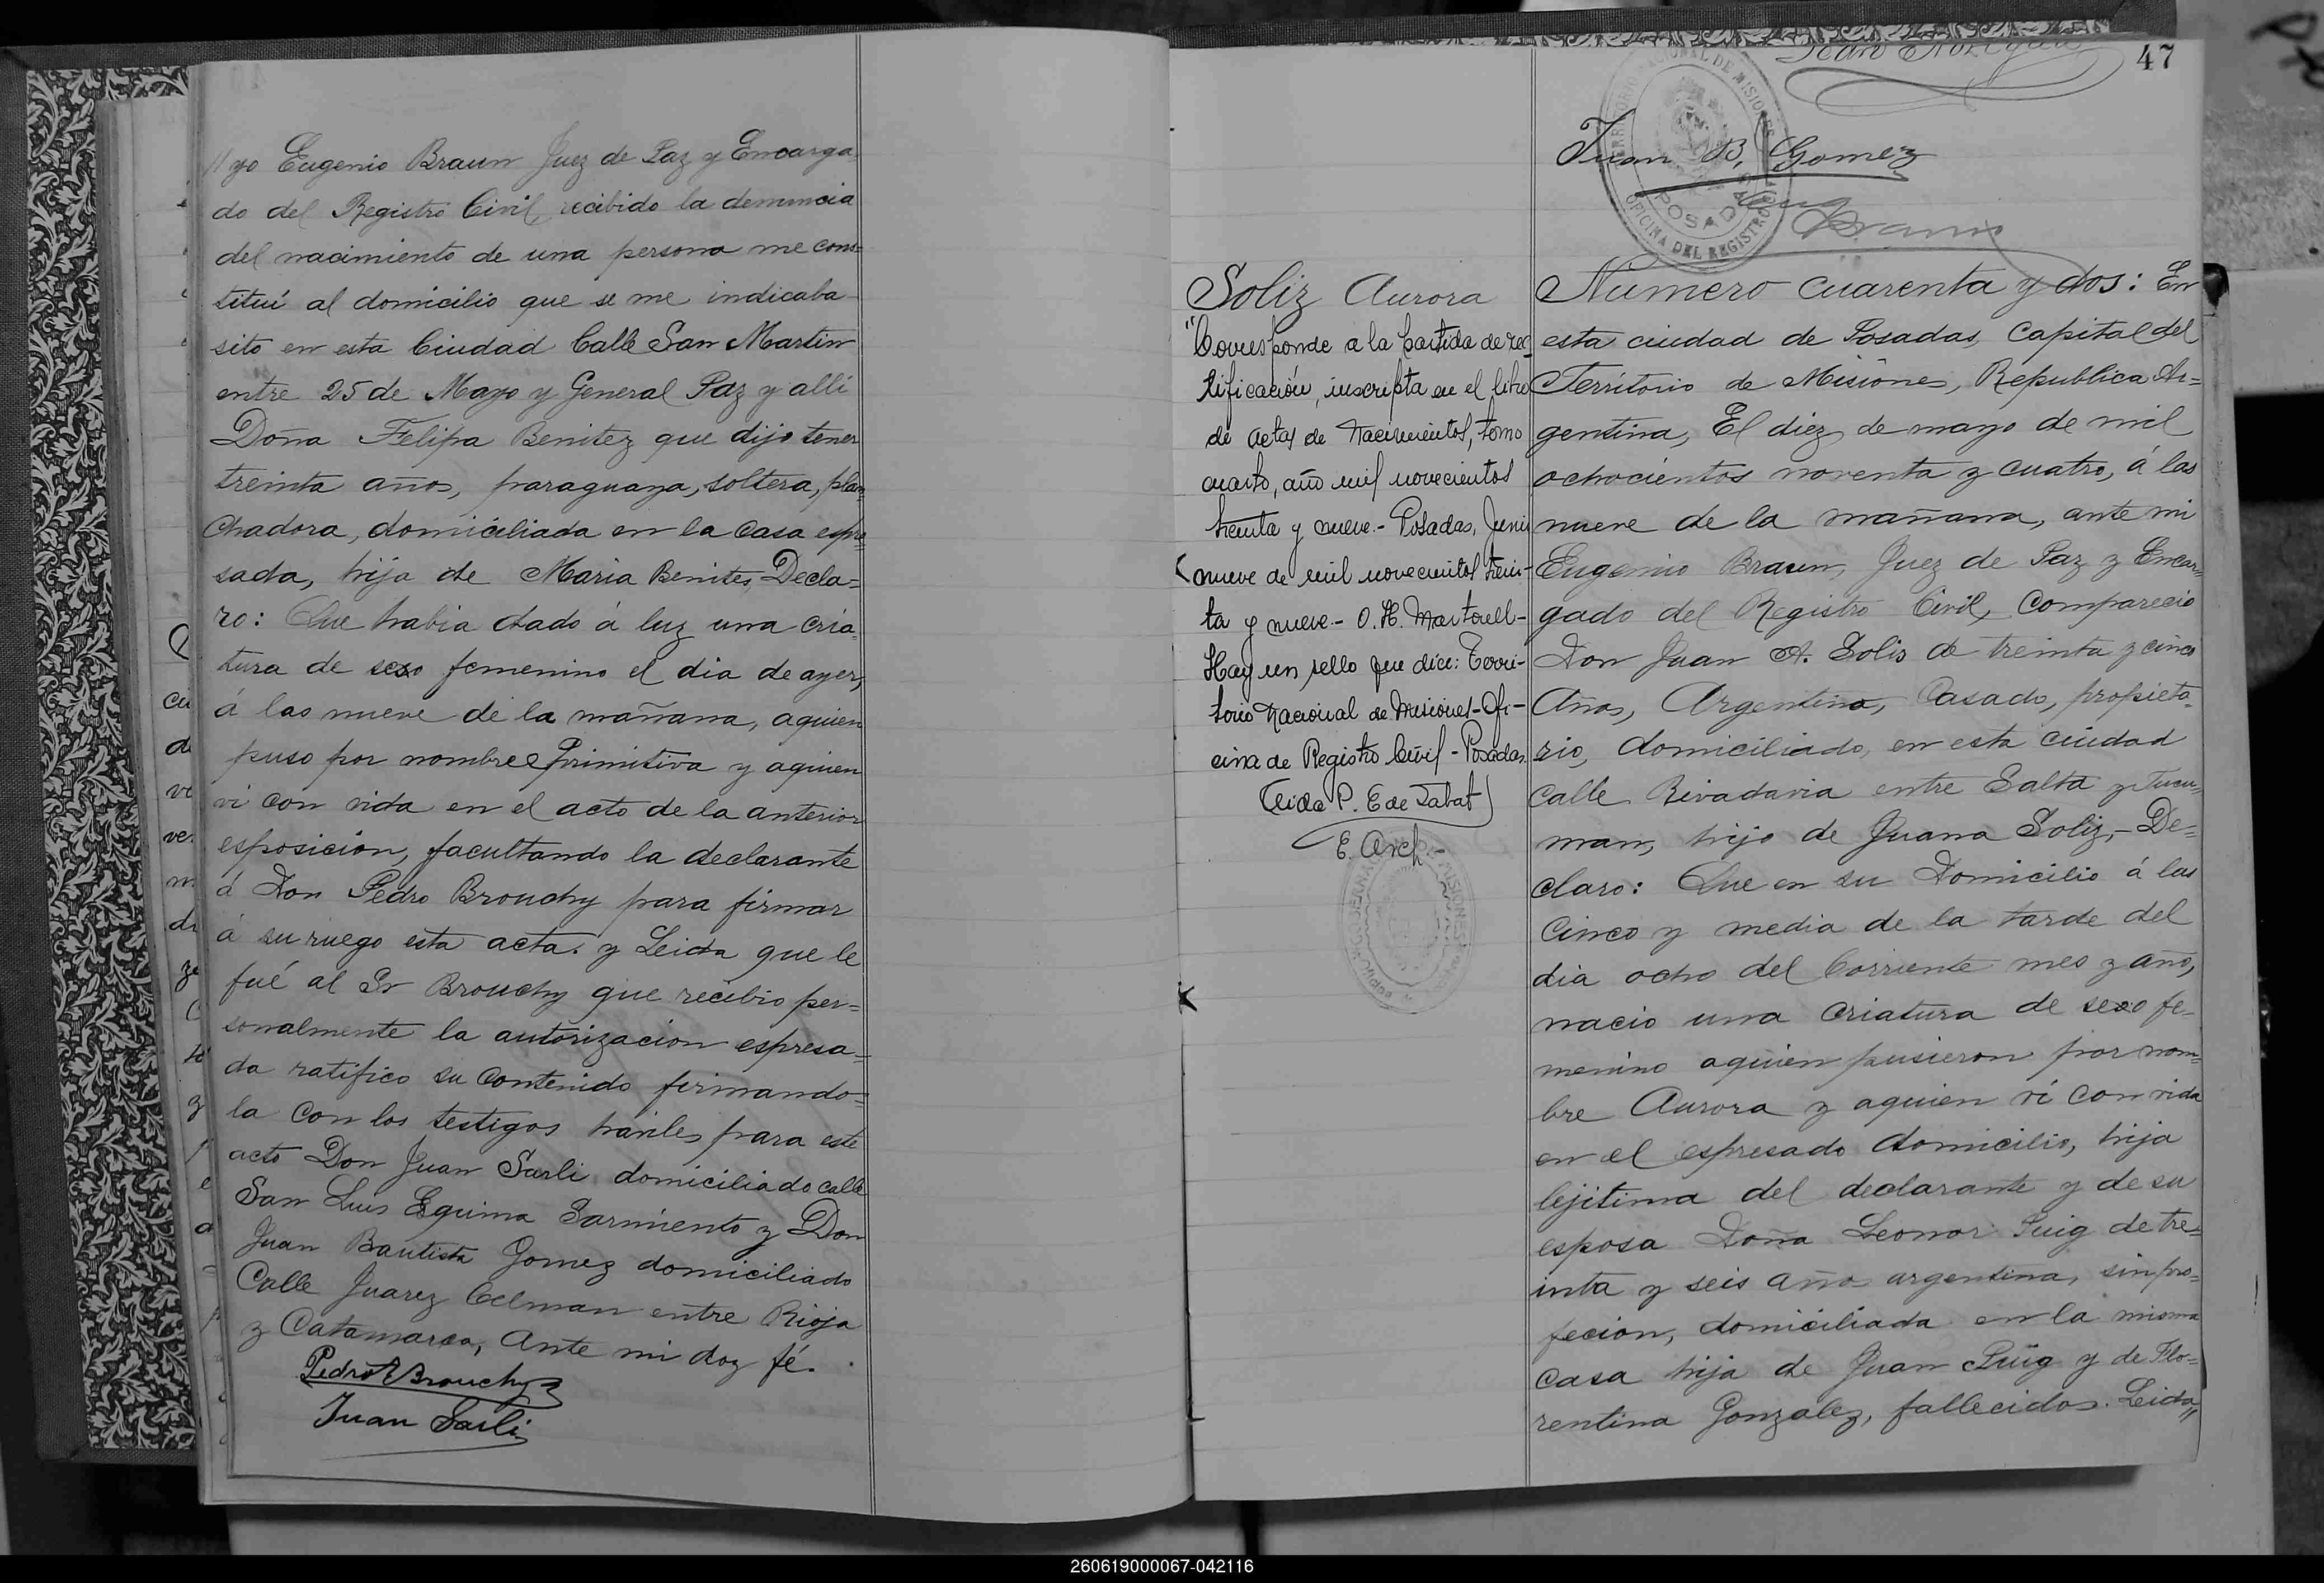 // yo Eugenio Braun Juez de Paz y Encarga
do del Registro Civil, recibido la denuncia
del nacimiento de una persona me cons=
tituí al domicilio que se me indicaba
sito en esta Ciudad Calle San Martin
entre 25 de Mayo y General Paz y alli
Doña Felipa Benitez que dijo tener
treinta años, paraguaya, soltera, plan
chadora, domiciliada en la casa espre
sada, hija de Maria Benites, Decla=
ro: Que habia dado á luz una cria
tura de sexo femenino el dia de ayer,
á las nueve de la mañana, aquien
puso por nombre Primitiva y aquien
ví con vida en el acto de la anterior
esposición, facultando la declarante
á Don Pedro Brouchy para firmar
á su ruego esta acta. y Leida que le
fué al Sr Brouchy que recibio per=
sonalmente la autorizacion espresa=
da ratifico su contenido firmando=
la con los testigos haviles para este
acto Don Juan Sarli domiciliado calle
San Luis Esquina Sarmiento y Don
Juan Bautista Gomez domiciliado
Calle Juarez Celman entre Rioja
y Catamarca, Ante mi doy fé.
Pedro Brouchy
Juan Sarli
47
Juan B. Gomez
Braun
TERRITORIO NACIONAL DE MISIONES
POSADAS
OFICINA DEL REGISTRO
Soliz Aurora
"Corresponde a la partida de rec_
tificación, inscripta en el libro
de actas de Nacimientos, tomo
cuarto, año mil novecientos
treinta y nueve.- Posadas, Junio
nueve de mil novecientos trein-
ta y nueve.- O. H. Martorell-
Hay un sello que dice: Terri-
torio Nacional de Misiones-Ofi-
cina de Registro Civil-Posadas.
E. Arch.-
Numero cuarenta y dos: En
esta ciudad de Posadas, Capital del
Territorio de Misiones, Republica Ar=
gentina, El diez de mayo de mil
ochocientos noventa y cuatro, á las
nueve de la mañana, ante mi
Eugenio Braun, Juez de Paz y Encar=
gado del Registro Civil, Comparecio
Don Juan A. Solis de treinta y cinco
Años, Argentino, Casado, propieta=
rio, domiciliado, en esta ciudad
calle Rivadavia entre Salta y Tucu=
man, hijo de Juana Soliz,- De=
claro: Que en su Domicilio á las
Cinco y media de la tarde del
dia ocho del Corriente mes y año,
nacio una criatura de sexo fe=
menino aquien pusieron por nom=
bre Aurora y aquien ví con vida
en el espresado domicilio, hija
lejitima del declarante y de su
esposa Doña Leonor Puig de tre=
inta y seis años argentina, sin pro=
fecion, domiciliada en la misma
casa hija de Juan Puig y de Flo=
rentina Gonzalez, fallecidos. Leida //
260619000067-042116